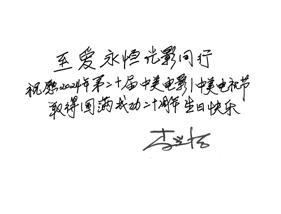 至爱永恒光影同行
祝愿2024年第二十届中美电影|中美电视节
取得圆满成功二十周年生日快乐